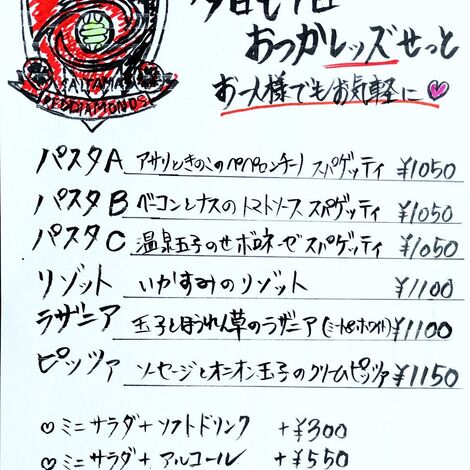 今日も1日
おつかレッズせっと
お一人様でもお気軽に♡
パスタA アサリときのこのペペロンチーノ スパゲッティ ¥1050
パスタB ベーコンとナスのトマトソース スパゲッティ ¥1050
パスタC 温泉玉子のせボロネーゼ スパゲッティ ¥1050
リゾット いかすみのリゾット ¥1100
ラザニア 玉子とほうれん草のラザニア(ミート&ホワイト) ¥1100
ピッツァ ソーセージとオニオン玉子のクリームピッツァ ¥1150
♡ミニサラダ+ソフトドリンク +¥300
♡ミニサラダ+アルコール +¥550